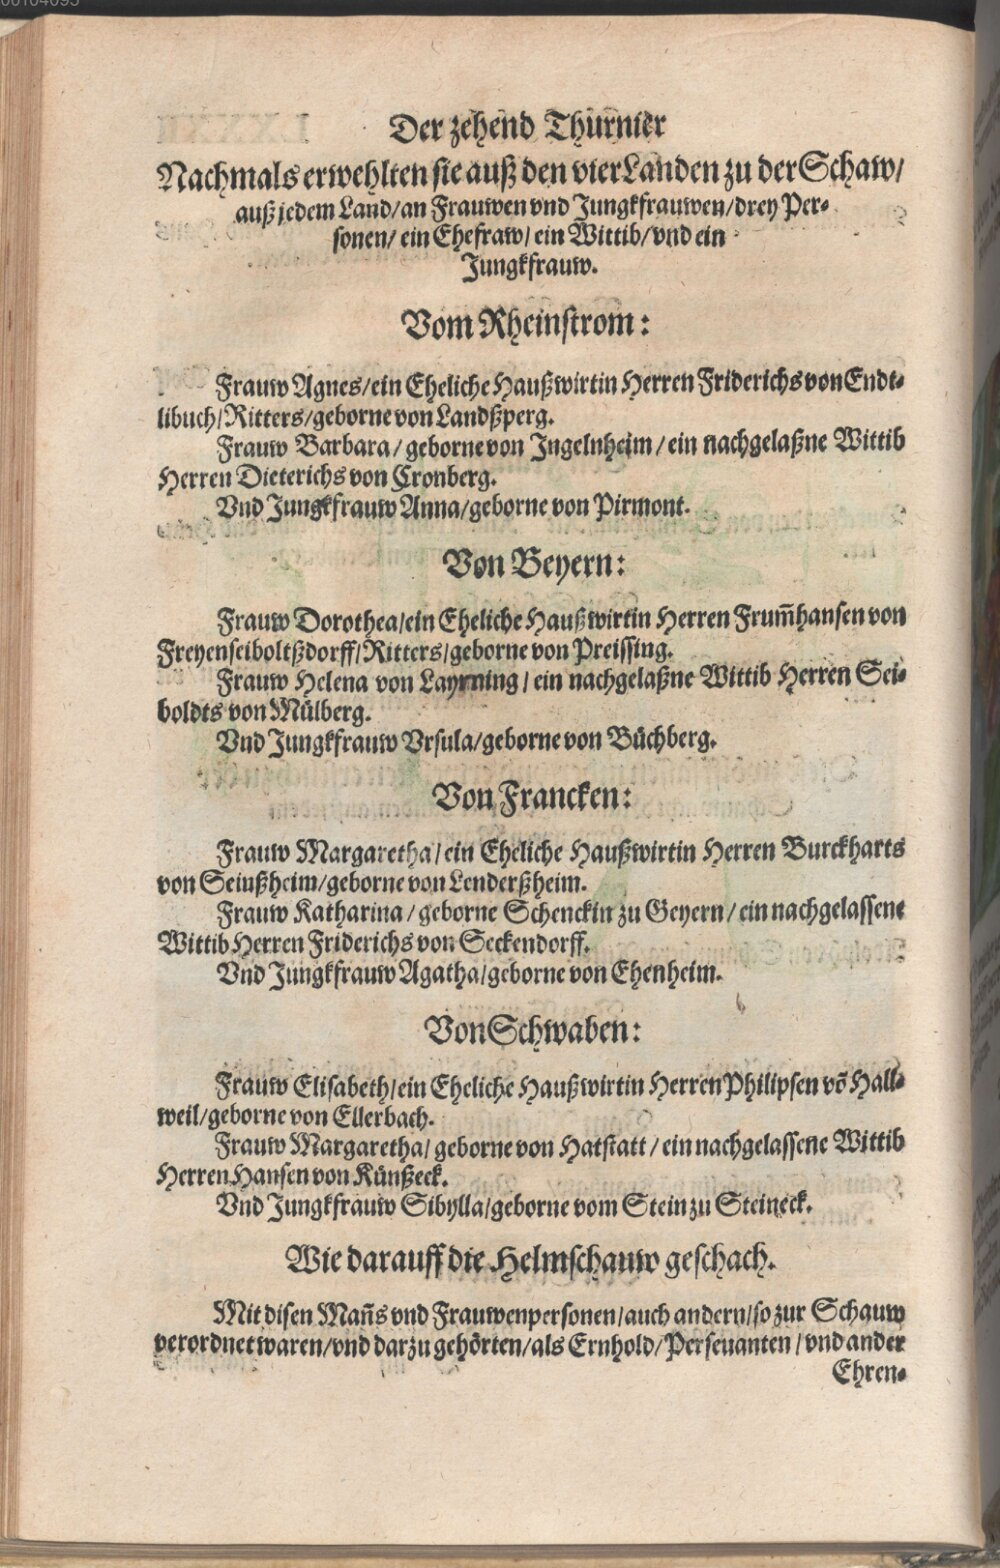 Der zehend Thürnier
Nachmals erwehlten sie auß den vier Landen zu der Schaw/
auß jedem Land/an Frauwen vnd Jungkfrauwen/drey Per-
sonen/ ein Ehefraw/ ein Wittib/vnd ein
Jungkfrauw.
Vom Rheinstrom:
Frauw Agnes/ein Eheliche Haußwirtin Herren Friderichs von Endt-
libuch/Ritters/geborne von Landßperg.
Frauw Barbara/ geborne von Ingelnheim/ ein nachgelaßne Wittib
Herren Dieterichs von Cronberg.
Vnd Jungkfrauw Anna/geborne von Pirmont.
Von Beyern:
Frauw Dorothea/ein Eheliche Haußwirtin Herren Frum̃hansen von
Freyenseiboltßdorff/Ritters/geborne von Preissing.
Frauw Helena von Layming/ ein nachgelaßne Wittib Herren Sei-
boldts von Mülberg.
Vnd Jungkfrauw Vrsula/geborne von Büchberg.
Von Francken:
Frauw Margaretha/ein Eheliche Haußwirtin Herren Burckharts
von Seiußheim/geborne von Lenderßheim.
Frauw Katharina/ geborne Schenckin zu Geyern/ ein nachgelassene
Wittib Herren Friderichs von Seckendorff.
Vnd Jungkfrauw Agatha/geborne von Ehenheim.
Von Schwaben:
Frauw Elisabeth/ein Eheliche Haußwirtin Herren Philipsen võ Hall-
weil/geborne von Ellerbach.
Frauw Margaretha/ geborne von Hatstatt/ ein nachgelassene Wittib
Herren Hansen von Künßeck.
Vnd Jungkfrauw Sibylla/geborne vom Stein zu Steineck.
Wie darauff die Helmschauw geschach.
Mit disen Mañs vnd Frauwenpersonen/auch andern/so zur Schauw
verordnet waren/vnd darzu gehörten/als Ernhold/Perseuanten/ vnd ander
Ehren-